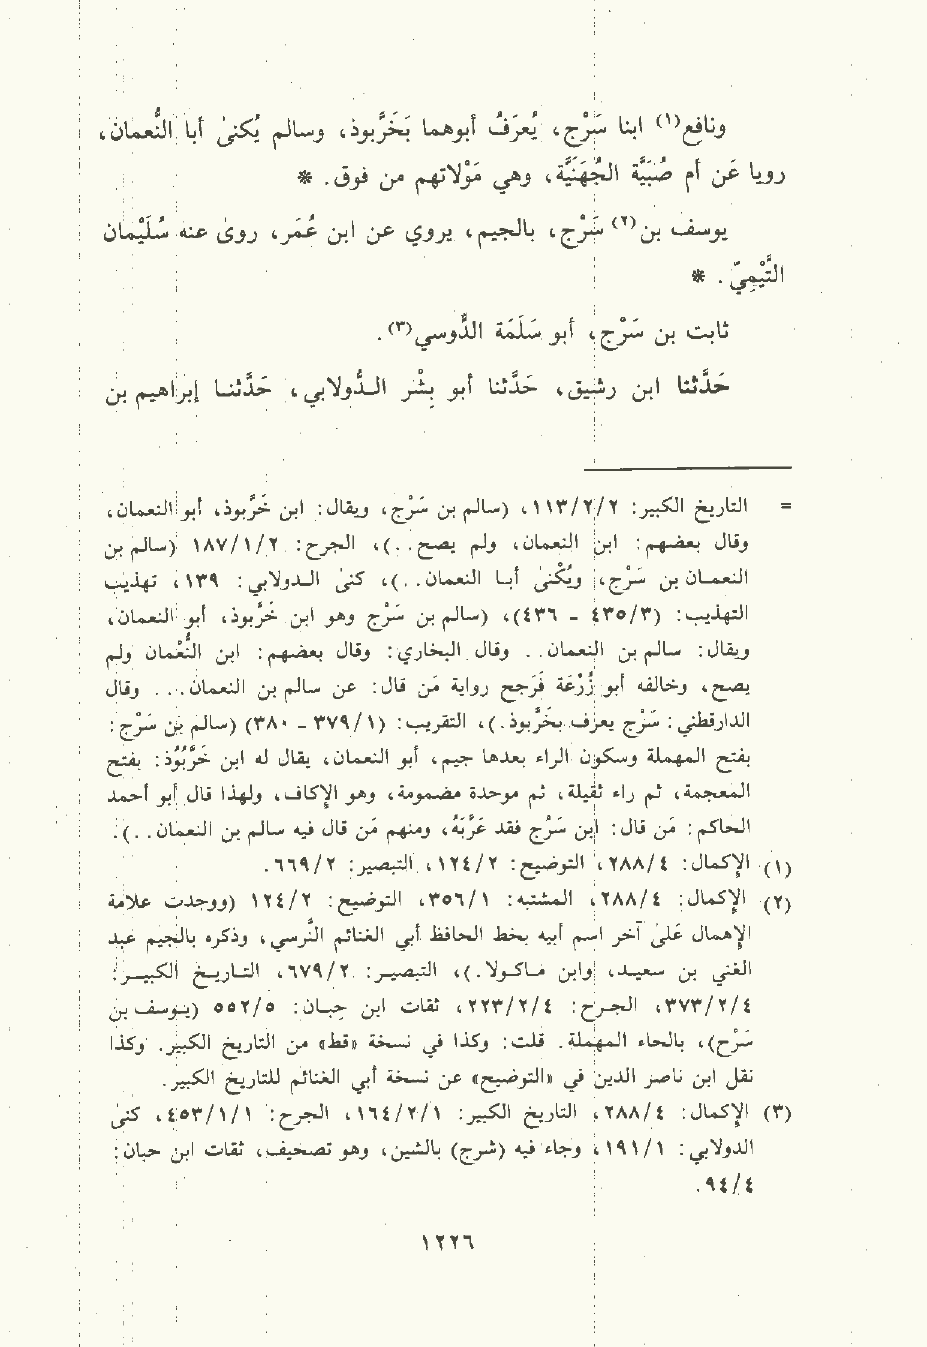 ونافع(١) ابنا سَرْج، يُعرَفُ أبوهما بَخَرَّبوذ، وسالم يُكنىٰ أبا النُّعمان،
رويا عَن أم صُبَيَّة الجُهَنَيَّة، وهي مَوْلاتهم من فوق. *
يوسف بن(٢) سَرْج، بالجيم، يروي عن ابن عُمَر، روىٰ عنه سُلَيْمان
التَّيْمِيّ. *
ثابت بن سَرْج، أبو سَلَمَة الدَّوسي(٣).
حَدَّثنا ابن رشيق، حَدَّثنا أبو بِشْر الدُّولابي، حَدَّثنا إبراهيم بن
= التاريخ الكبير: ١١٣/٢/٢، (سالم بن سَرْج، ويقال: ابن خَرَّبوذ، أبو النعمان،
وقال بعضهم: ابن النعمان، ولم يصح..)، الجرح: ١٨٧/١/٢ (سالم بن
النعمان بن سَرْج، ويُكْنىٰ أبا النعمان..)، كنىٰ الدولابي: ١٣٩، تهذيب
التهذيب: (٤٣٥/٣ - ٤٣٦)، (سالم بن سَرْج وهو ابن خَرَّبوذ، أبو النعمان،
ويقال: سالم بن النعمان.. وقال البخاري: وقال بعضهم: ابن النُّعْمان ولم
يصح، وخالفه أبو زُرْعَة فَرَجح رواية مَن قال: عن سالم بن النعمان... وقال
الدارقطني: سَرْج يعرف بخَرَّبوذ.)، التقريب: (٣٧٩/١ - ٣٨٠) (سالم بن سَرْج:
بفتح المهملة وسكون الراء بعدها جيم، أبو النعمان، يقال له ابن خَرَّبُوُذ: بفتح
المعجمة، ثم راء ثقيلة، ثم موحدة مضمومة، وهو الإكاف، ولهذا قال أبو أحمد
الحاكم: مَن قال: ابن سَرْج فقد عَرَّبَهُ، ومنهم مَن قال فيه سالم بن النعمان..).
(١) الإكمال: ٢٨٨/٤، التوضيح: ١٢٤/٢، التبصير: ٦٦٩/٢.
(٢) الإكمال: ٢٨٨/٤، المشتبه: ٣٥٦/١، التوضيح: ١٢٤/٢ (ووجدت علامة
الإهمال عَلىٰ آخر اسم أبيه بخط الحافظ أبي الغنائم النَّرسي، وذكره بالجيم عبد
الغني بن سعيد، وابن ماكولا.)، التبصير: ٦٧٩/٢، التاريخ الكبير:
٣٧٣/٢/٤، الجرح: ٢٢٣/٢/٤، ثقات ابن حِبان: ٥٥٢/٥ (يوسف بن
سَرْح)، بالحاء المهملة. قلت: وكذا في نسخة «قط» من التاريخ الكبير. وكذا
نقل ابن ناصر الدين في «التوضيح» عن نسخة أبي الغنائم للتاريخ الكبير.
(٣) الإكمال: ٢٨٨/٤، التاريخ الكبير: ١٦٤/٢/١، الجرح: ٤٥٣/١/١، كنىٰ
الدولابي: ١٩١/١، وجاء فيه (شرج) بالشين، وهو تصحيف، ثقات ابن حبان:
٩٤/٤.
١٢٢٦